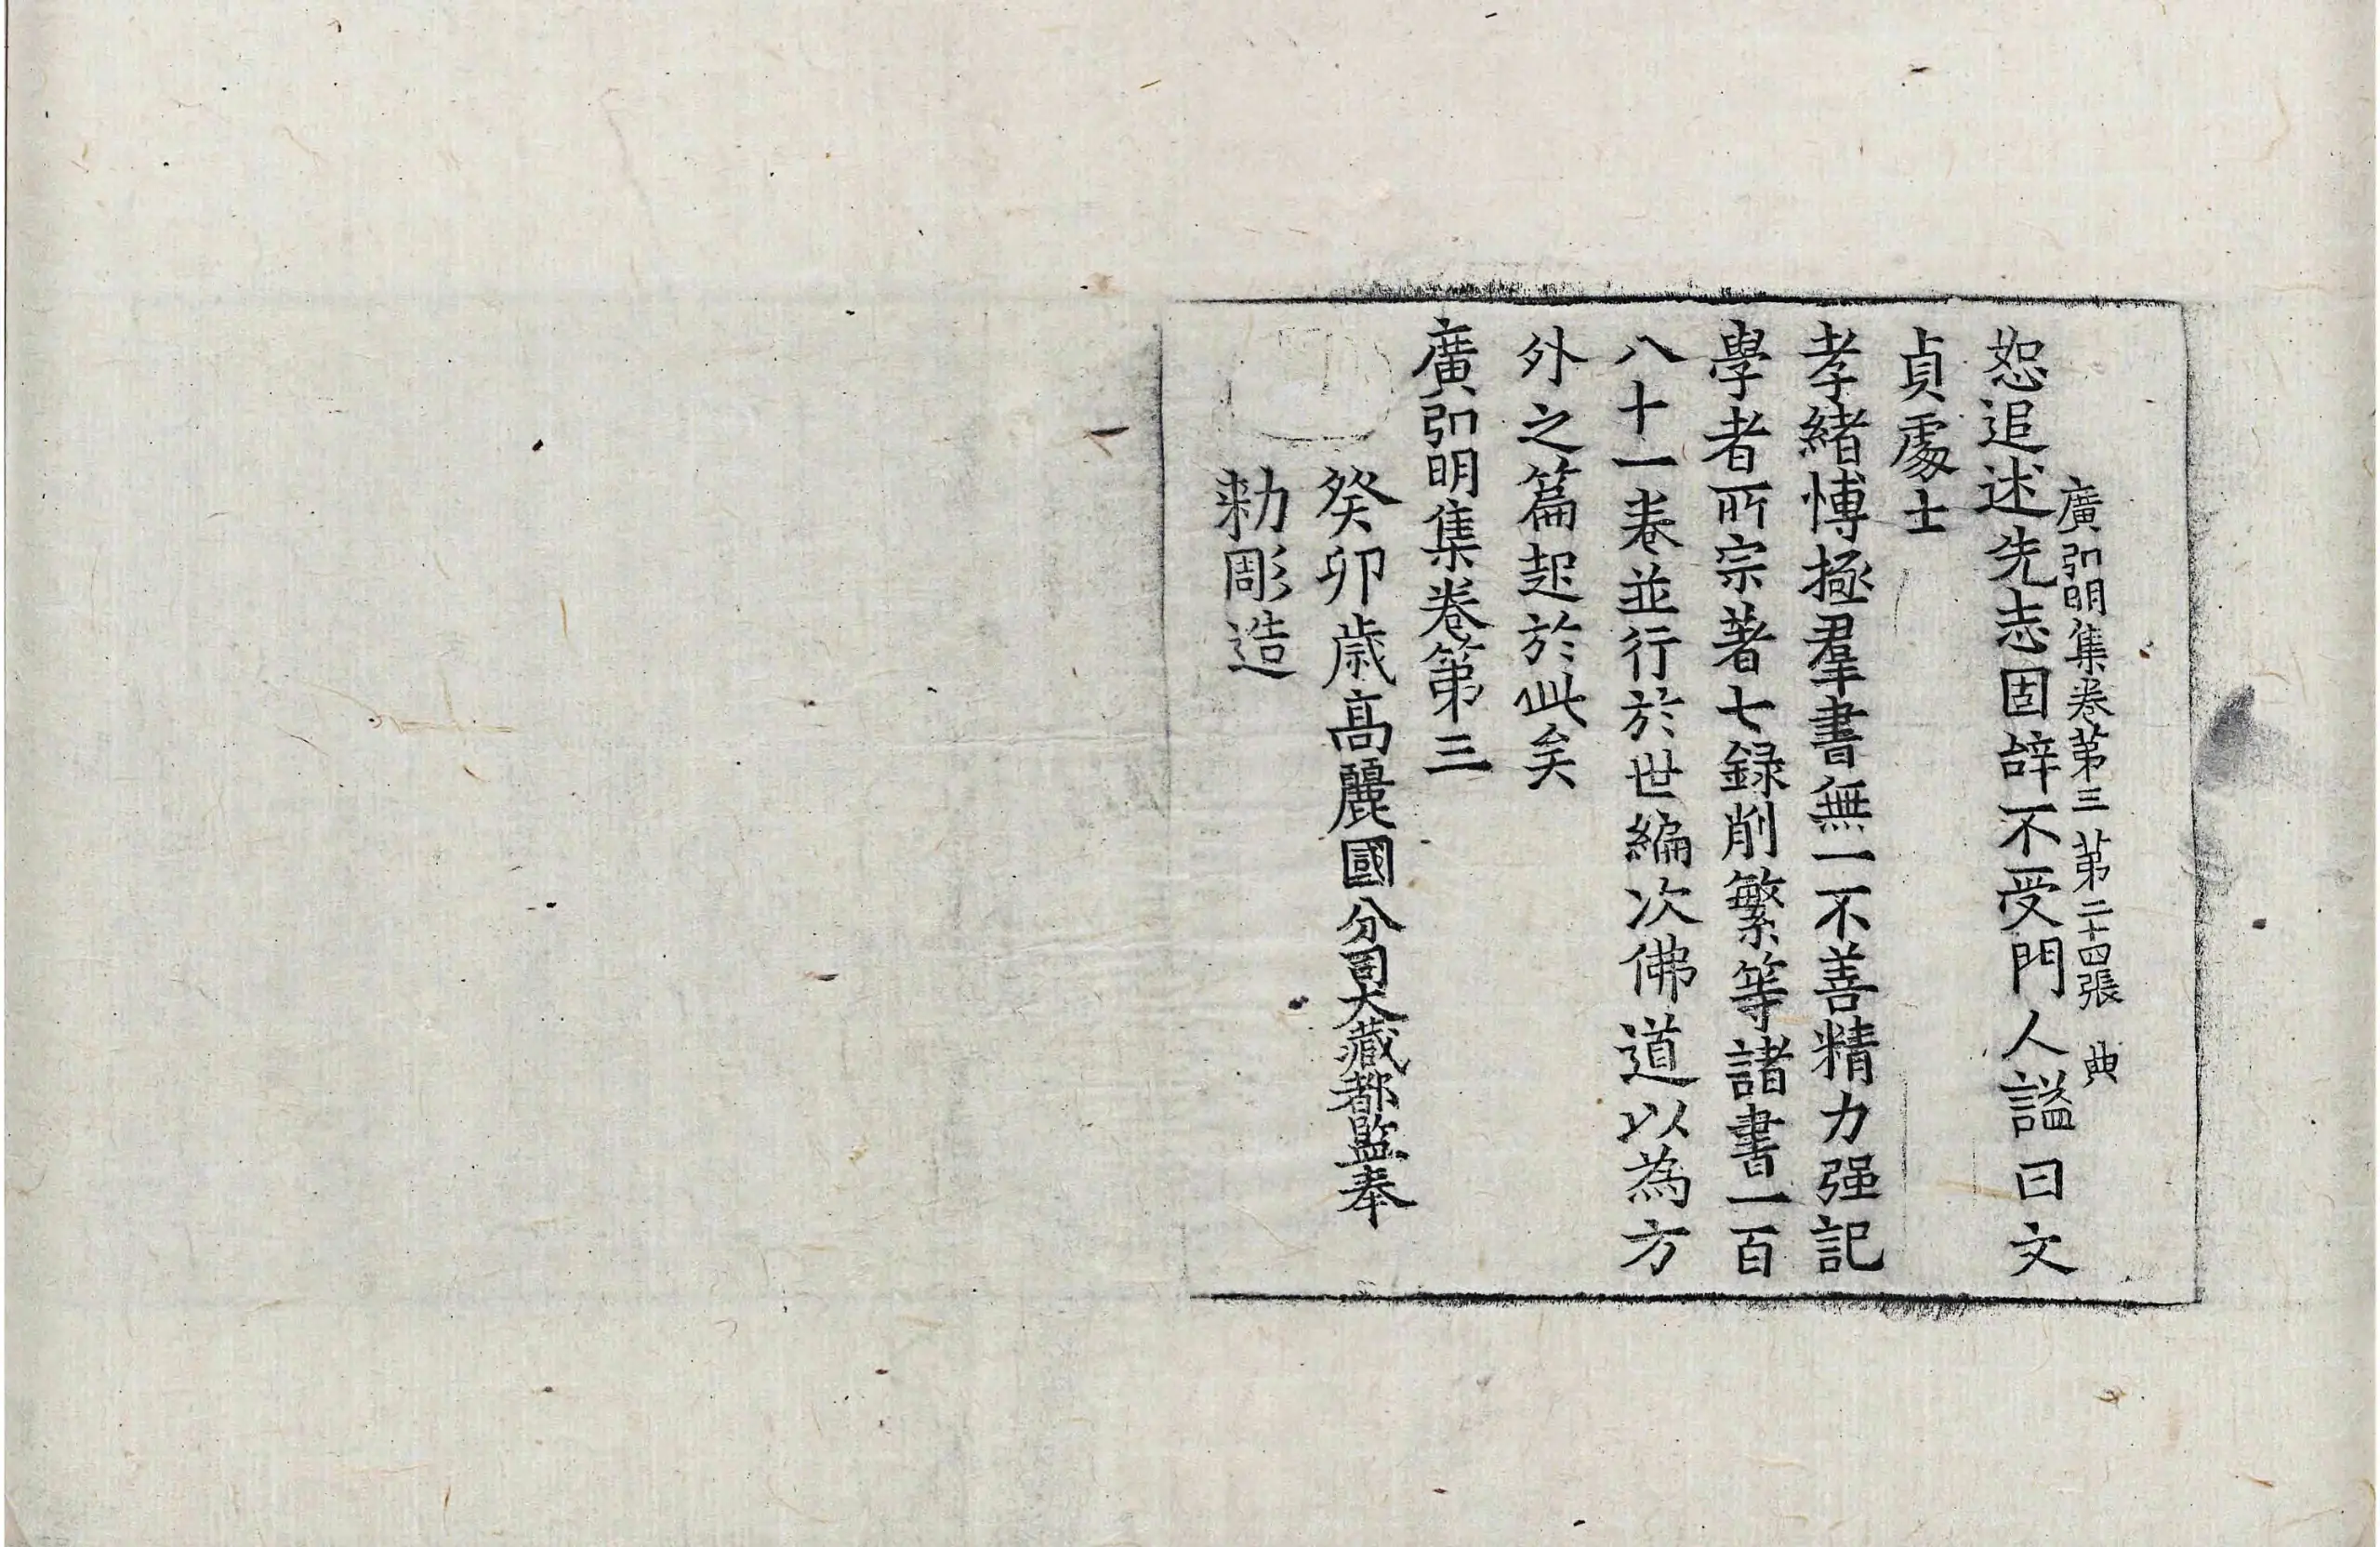 廣弘明集卷第三 第二十四張 典
恕追述先志固辝不受門人謚曰文
貞處士
孝緒博極羣書無一不善精力强記
學者所宗著七録削繁等諸書一百
八十一卷並行於世編次佛道以為方
外之篇起於此矣
廣弘明集卷第三
癸卯歲高麗國分司大藏都監奉
勑彫造